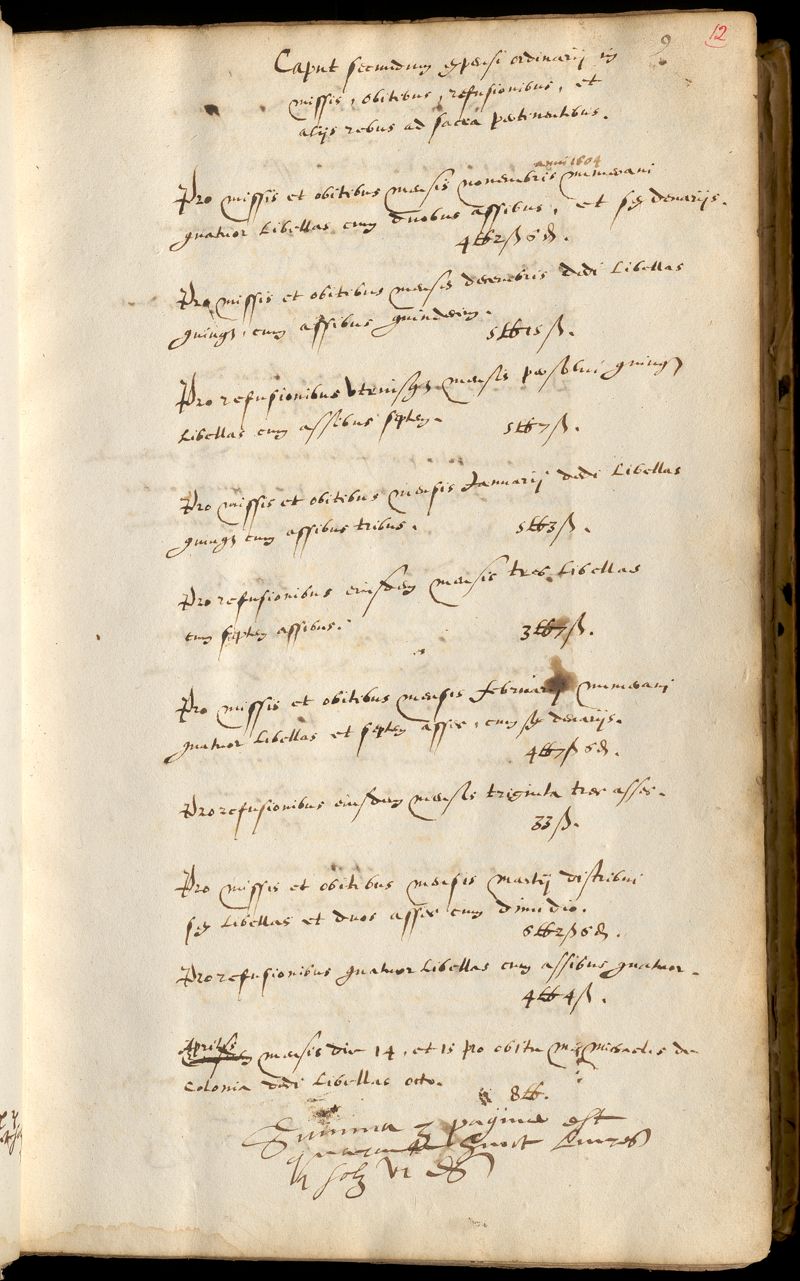 9 12
Caput secundum expensi ordinarij in
missis, obitibus, refusionibus, et
alijs rebus ad sacra pertinentibus.
anni 1604
Pro missis et obitibus mensis nouembris numeraui
quatuor libellas cum duobus assibus, et sex denarijs.
4 lb 2 ß 6 d.
Pro missis et obitibus mensis decembris dedi libellas
quinqz cum assibus quindecim.
5 lb 15 ß.
Pro refusionibus vtriusqz mensis persolui quinqz
libellas cum assibus septem.
5 lb 7 ß.
Pro missis et obitibus mensis Januarij dedi libellas
quinqz cum assibus tribus.
5 lb 3 ß.
Pro refusionibus eiusdem mensis tres libellas
cum septem assibus.
3 lb 7 ß.
Pro missis et obitibus mensis februarij numeraui
quatuor libellas et septem asses, cum sex denarijs.
4 lb 7 ß 6 d.
Pro refusionibus eiusdem mensis triginta tres asses.
33 ß.
Pro missis et obitibus mensis martij distribui
sex libellas et duos asses cum dimidio.
6 lb 2 ß 6 d.
Pro refusionibus quatuor libellas cum assibus quatuor.
4 lb 4 ß.
Aprilis
mensis die 14, et 15 pro obitu michaelis de
Colonia dedi libellas octo.
8 lb.
Summa pagine est
huict Liures
solz vi d